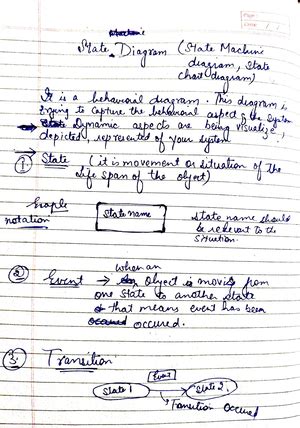 State Diagram (State Machine
diagram, State
chart diagram)
It is a behavioral diagram. This diagram is
trying to capture the behavioral aspect of the System
→ Dynamic aspects are being visualize,
depicted, represented of your system
① State (it is movement or situation of the
life span of the object)
Graple
notation
State name
State name should
be relevent to the
situation.
② Event → when an Object is moving from
one State to another state
that means event has been
occured.
③. Transition
Event
State 1
State 2
Transition Occured